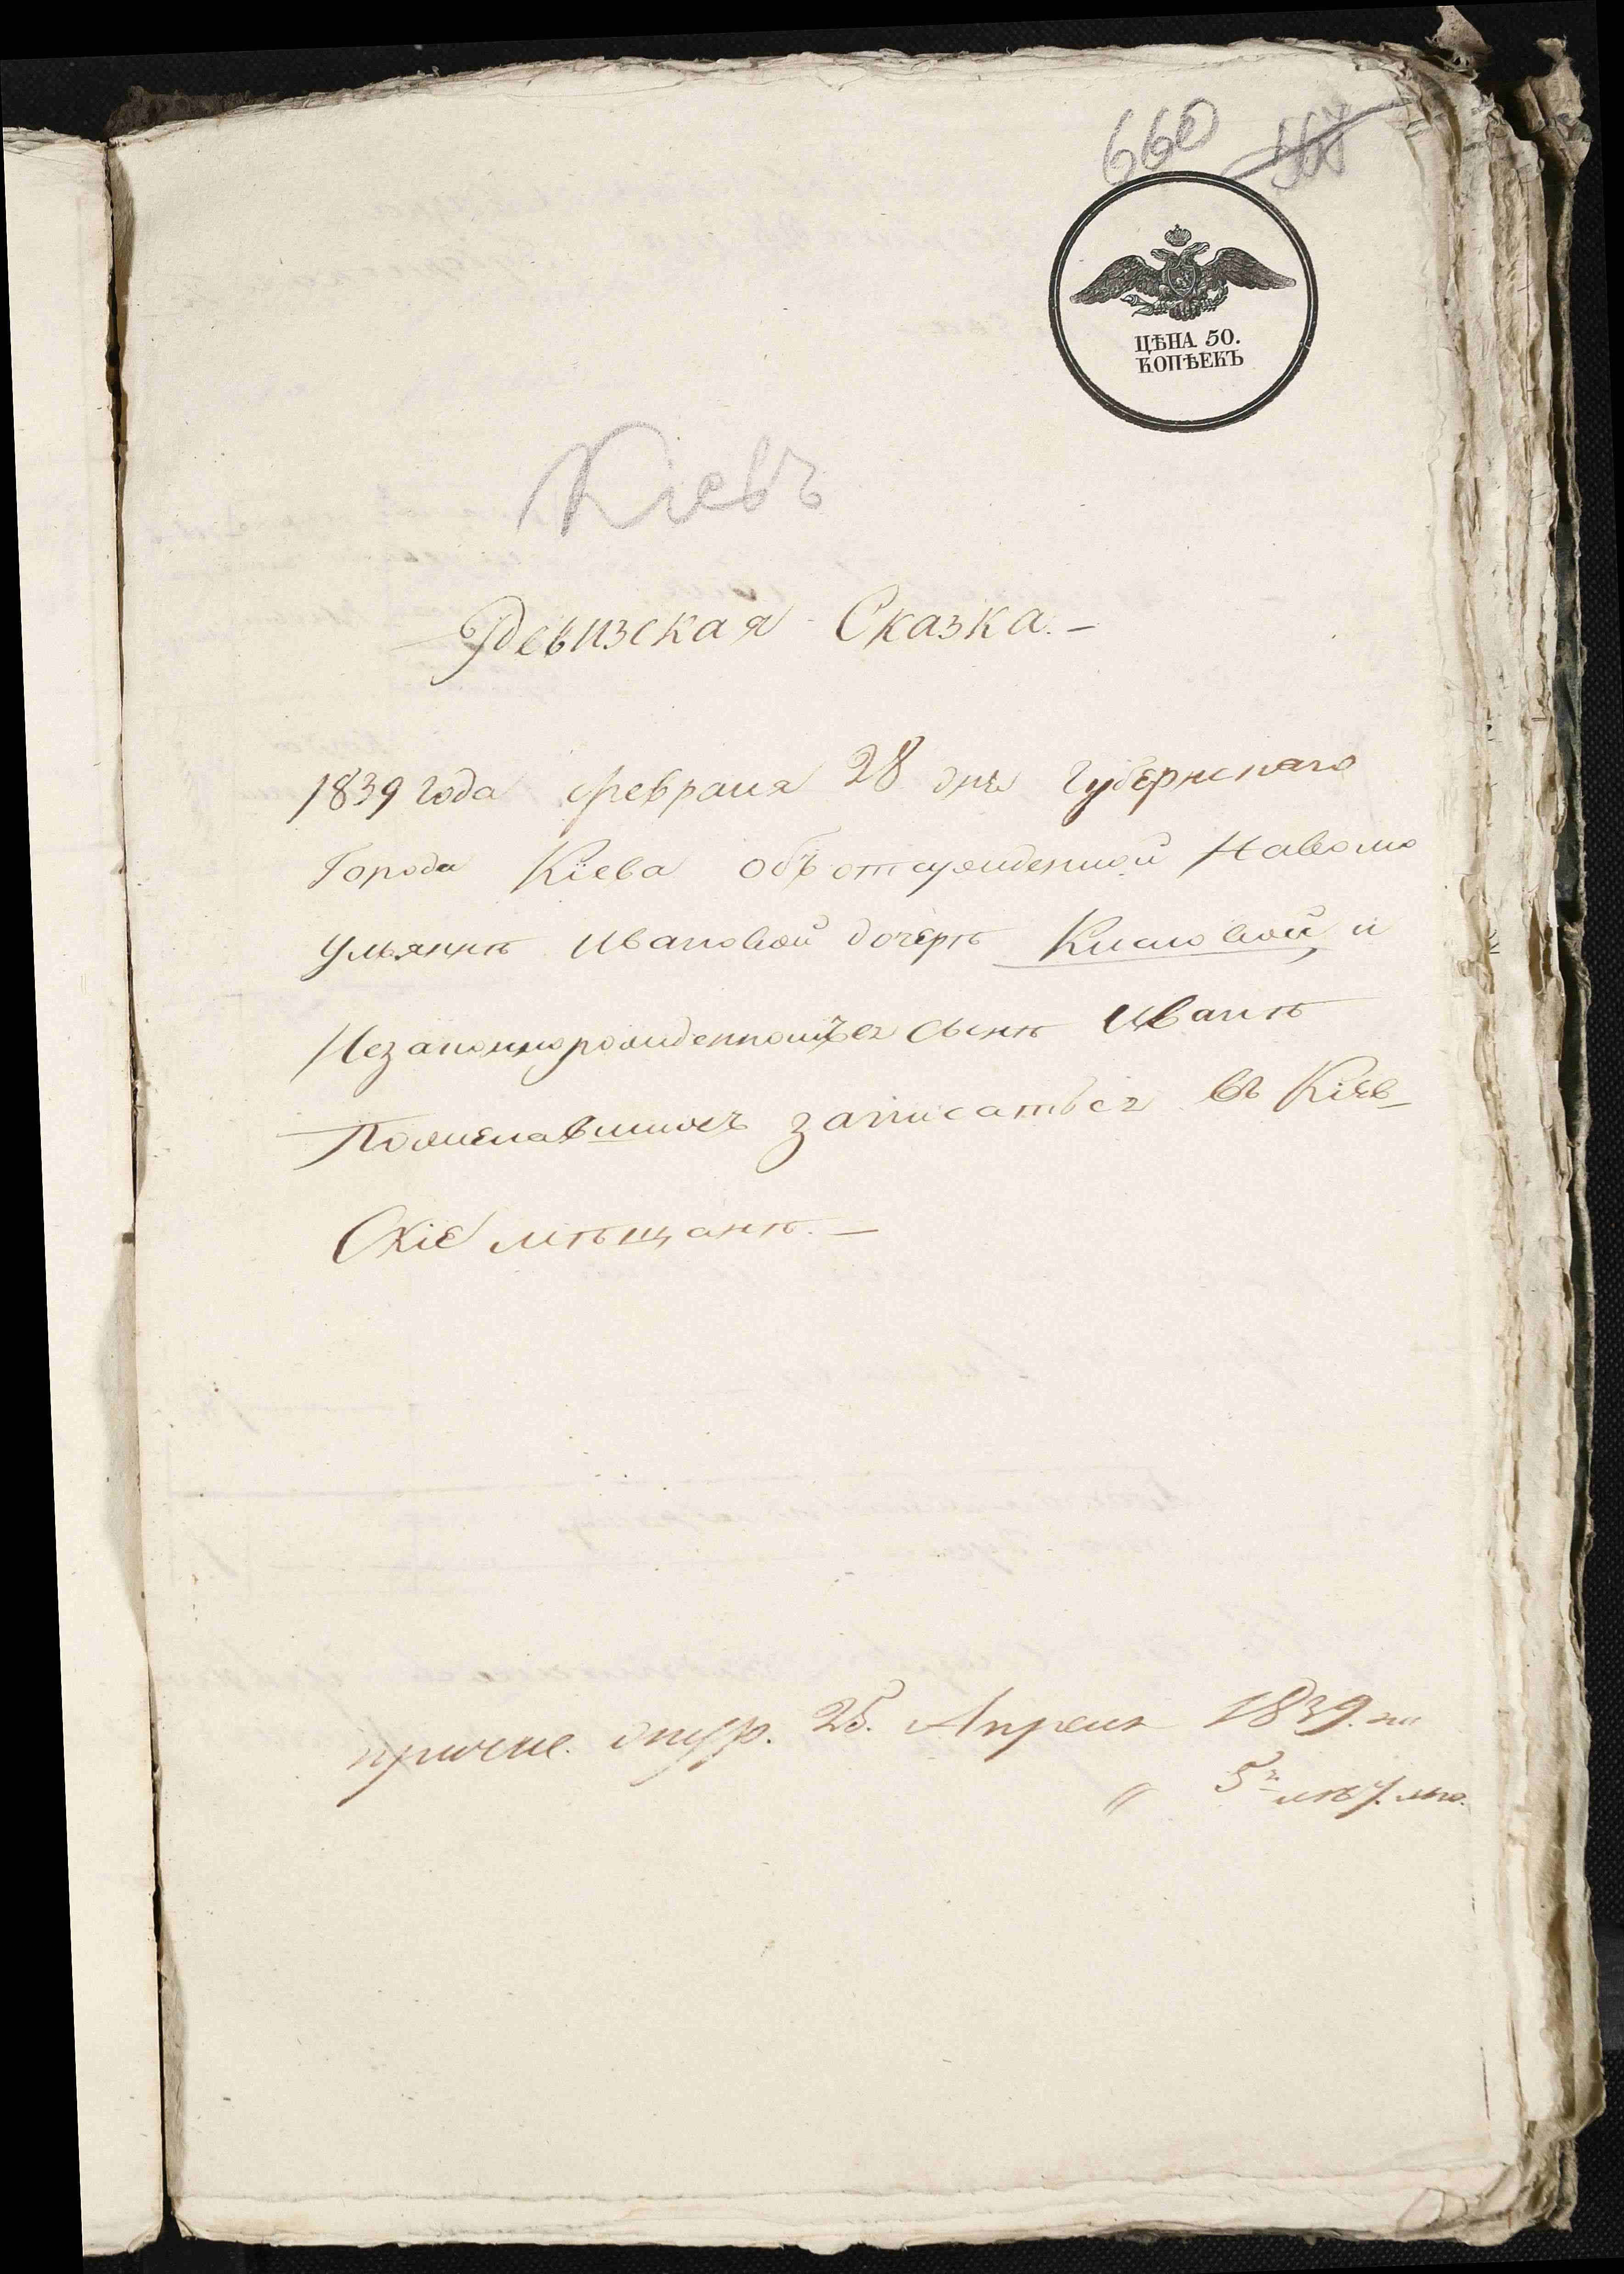 660
ЦѢНА 50.
КОПѢЕКЪ
Кіевъ
Ревизская Сказка. —
1839 года февраля 28 дня Губернскаго
Города Кіева объ отсужденной Наволю
Ульяннѣ Ивановой дочерѣ Кисловой, и
Незаконнорожденномъ ея сынѣ Иванѣ
Пожелавшихъ записаться въ Кіев-
Скіе мѣщанѣ. —
25. Апреля 1839.